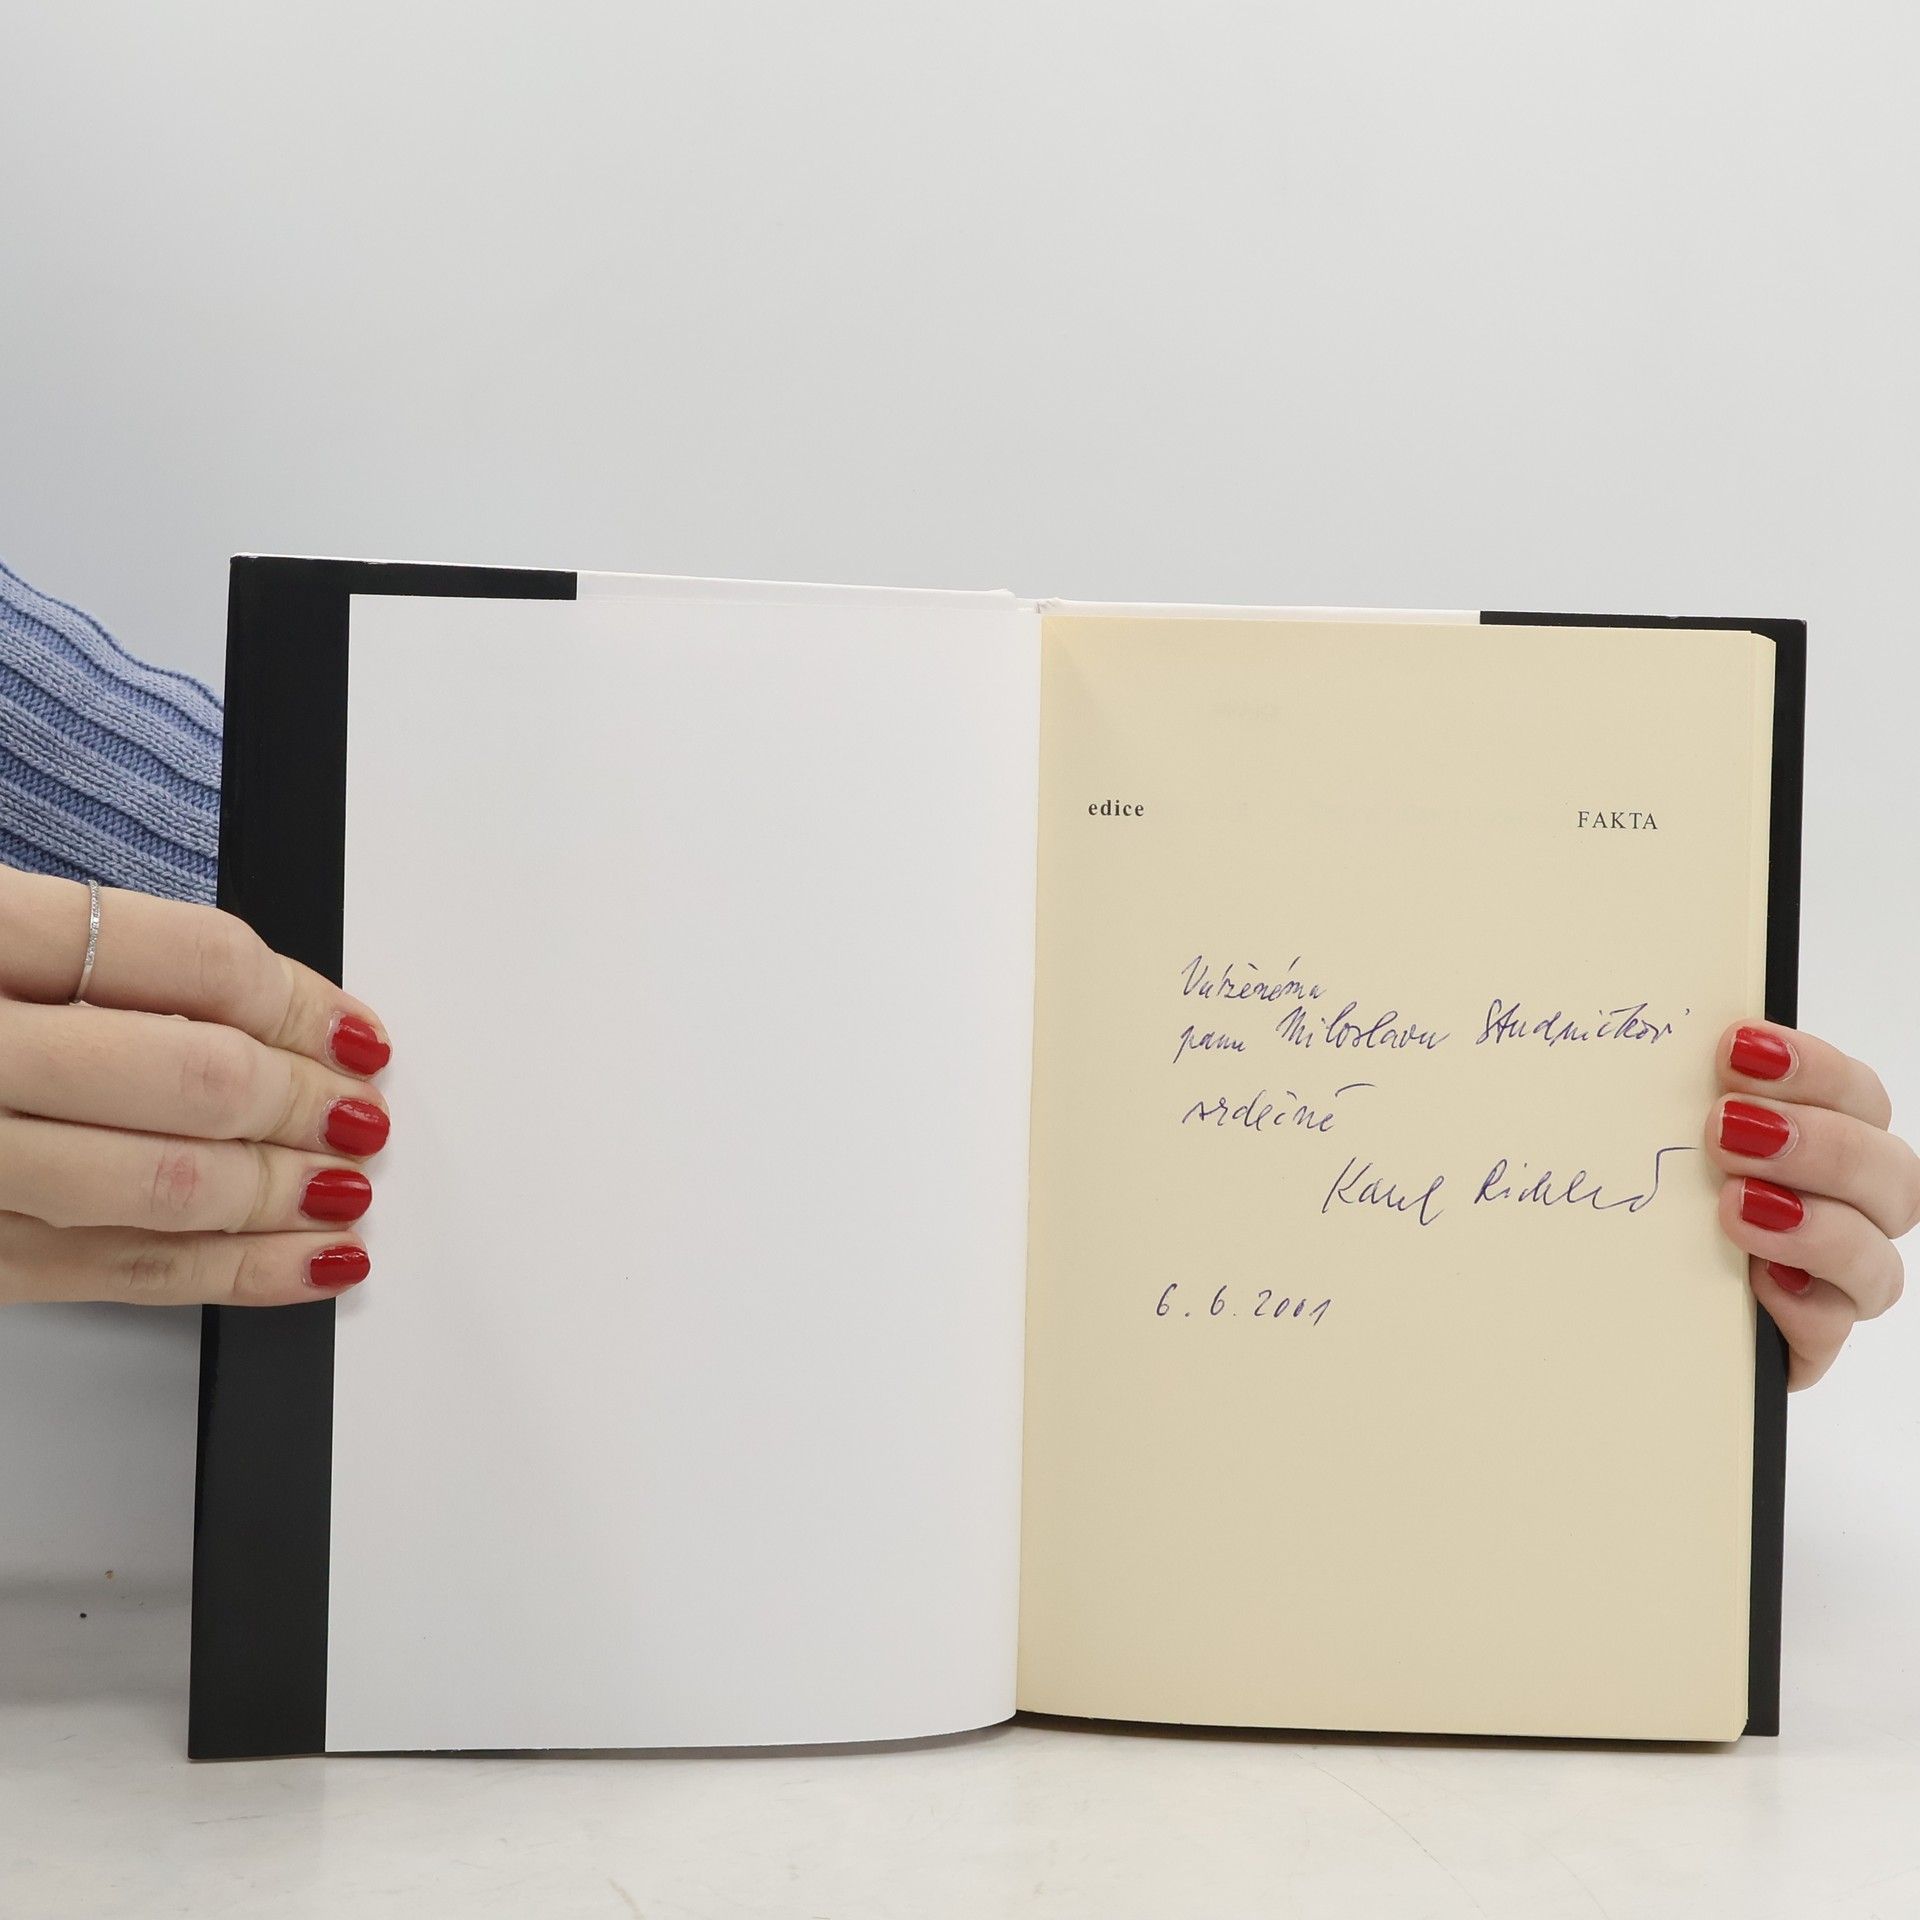 edice FAKTA
Váženému
panu Miloslavu Studničkovi
srdečně
Karel Richter
6. 6. 2001